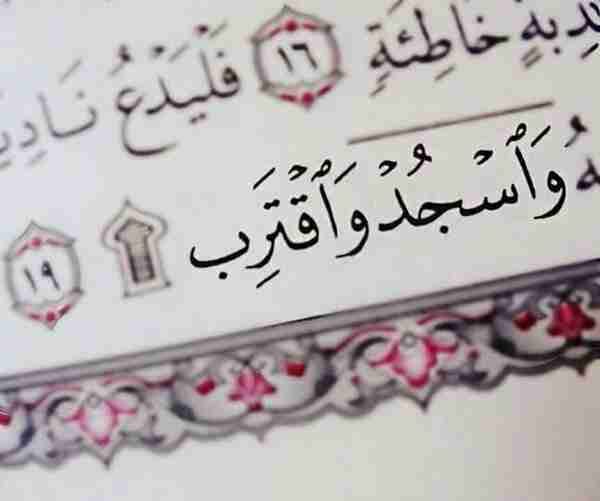 ذِبَةٍ خَاطِئَةٍ ١٦ فَلْيَدْعُ نَادِيَ
هُ وَٱسْجُدْ وَٱقْتَرِب ۩ ١٩